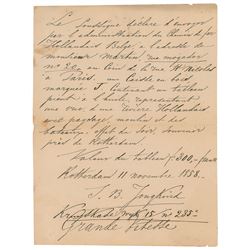 Le soussigné déclare d'envoyer
par l'administration du Chemin de fer
Hollandais Belge, à l'adresse de
monsieur Martin, rue mogador
n° 20, au Coin de la rue St Nicolas
à Paris, un Caisse en bois,
marquée J, Contenant un tableau
peint à l'huile, représentant
une vue d'une Rivière Hollandais
avec paysage, moulin et des
bateaux, effet du soir, souvenir
près de Rotterdam.
Valeur du tableau fr 300,-
Rotterdam 11 novembre 1858.
J. B. Jongkind
Kruyskade wyk 15 n° 285
Grande Vitesse